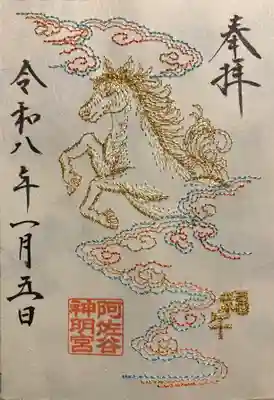 奉拝
令和八年一月五日
福午
阿佐谷
神明宮